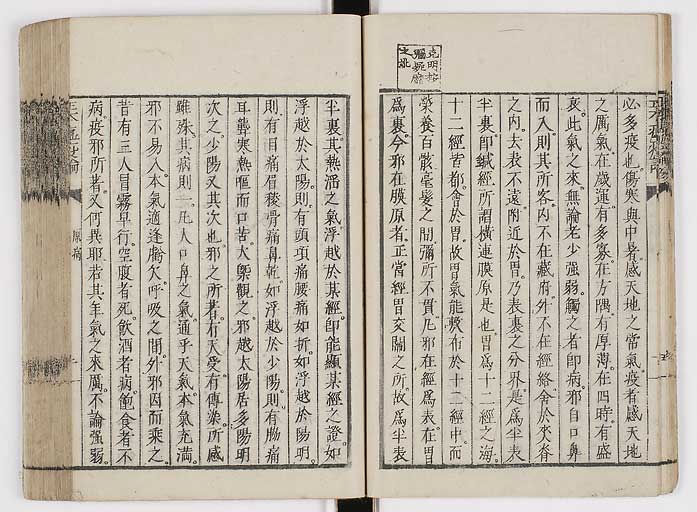 必多疫也傷寒與中暑感天地之常氣疫者感天地
之厲氣在歲運有多寡在方隅有厚薄在四時有盛
衰此氣之來無論老少強弱觸之者即病邪自口鼻
而入則其所客内不在臟府外不在經絡舍於夾脊
之内去表不遠附近於胃乃表裏之分界是爲半表
半裏即鍼經所謂橫連膜原是也胃爲十二經之海
十二經皆都會於胃故胃氣能敷布於十二經中而
榮養百骸毫髮之間彌所不貫凡邪在經爲表在胃
爲裏今邪在膜原者正當經胃交關之所故爲半表
半裏其熱淫之氣浮越於某經即能顯某經之證如
浮越於太陽則有頭項痛腰痛如折如浮越於陽明
則有目痛眉稜骨痛鼻乾如浮越於少陽則有脇痛
耳聾寒熱嘔而口苦大槩觀之邪越太陽居多陽明
次之少陽又其次也邪之所著有天受有傳染所感
雖殊其病則一凡人口鼻之氣通乎天氣本氣充滿
邪不易入本氣適逢虧欠呼吸之間外邪因而乘之
昔有三人冒霧早行空腹者死飲酒者病飽食者不
病疫邪所着又何異耶若其年氣之來厲不論強弱
原病